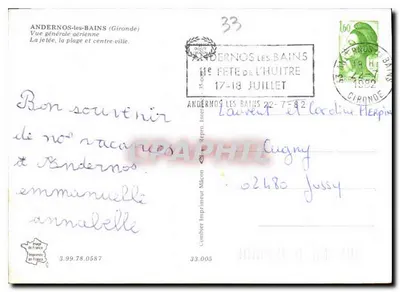 ANDERNOS-les-BAINS (Gironde)
Vue générale aérienne
La jetée, la plage et centre-ville.
33
1,60
ANDERNOS LES BAINS
11e FETE DE L'HUITRE
17-18 JUILLET
ANDERNOS LES BAINS 22-7-82
1982
GIRONDE
Bon souvenir
de nos vacances
à Andernos.
emmanuelle
annabelle
Laurent et
Cugny
02480 Jussy
CPAPHIL
Combier Imprimeur Mâcon
3.99.78.0587
33.005